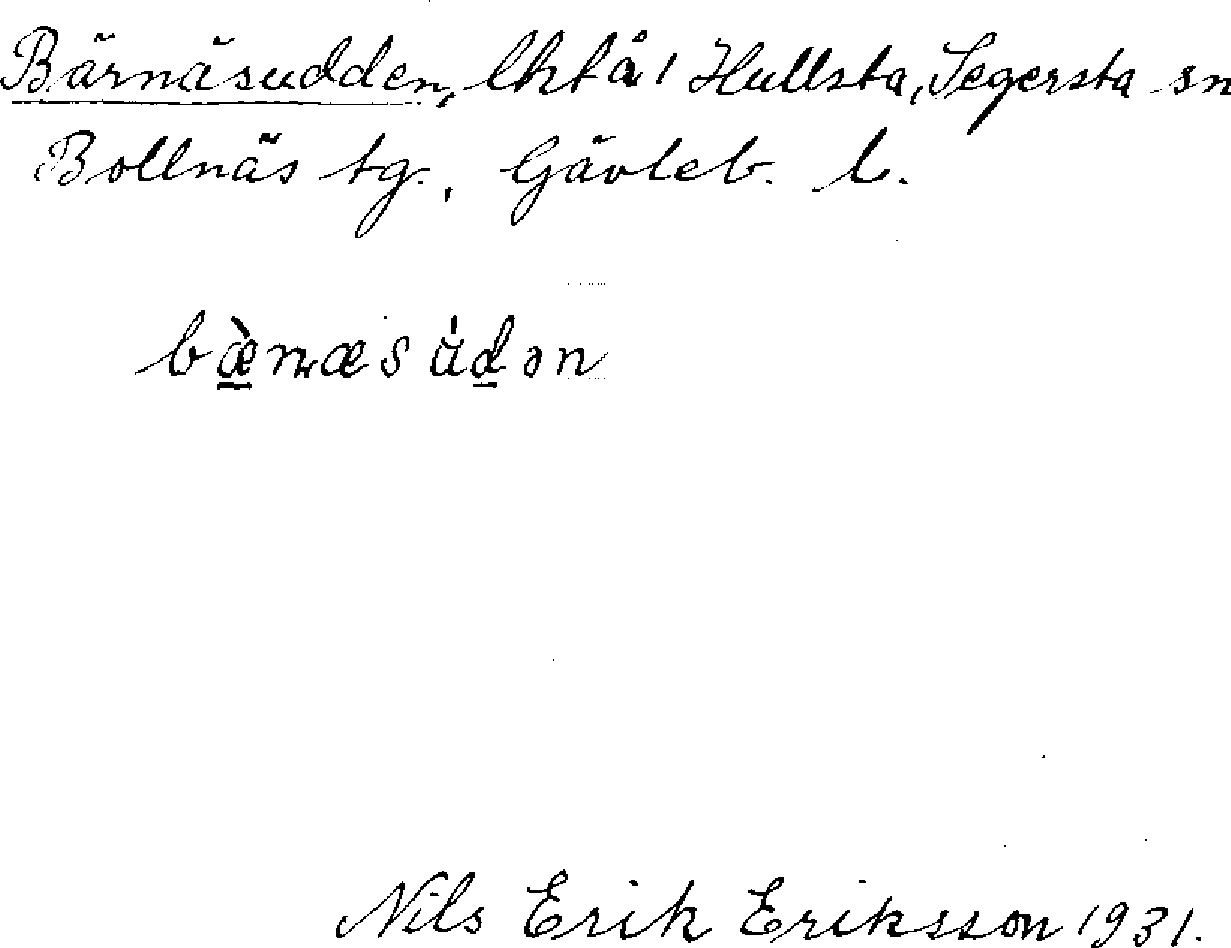 Bärnäsudden, lht å 1 Hullsta, Segersta sn
Bollnäs tg., Gävleb. l.
bæ̀ɳæsúdən
Nils Erik Eriksson 1931.